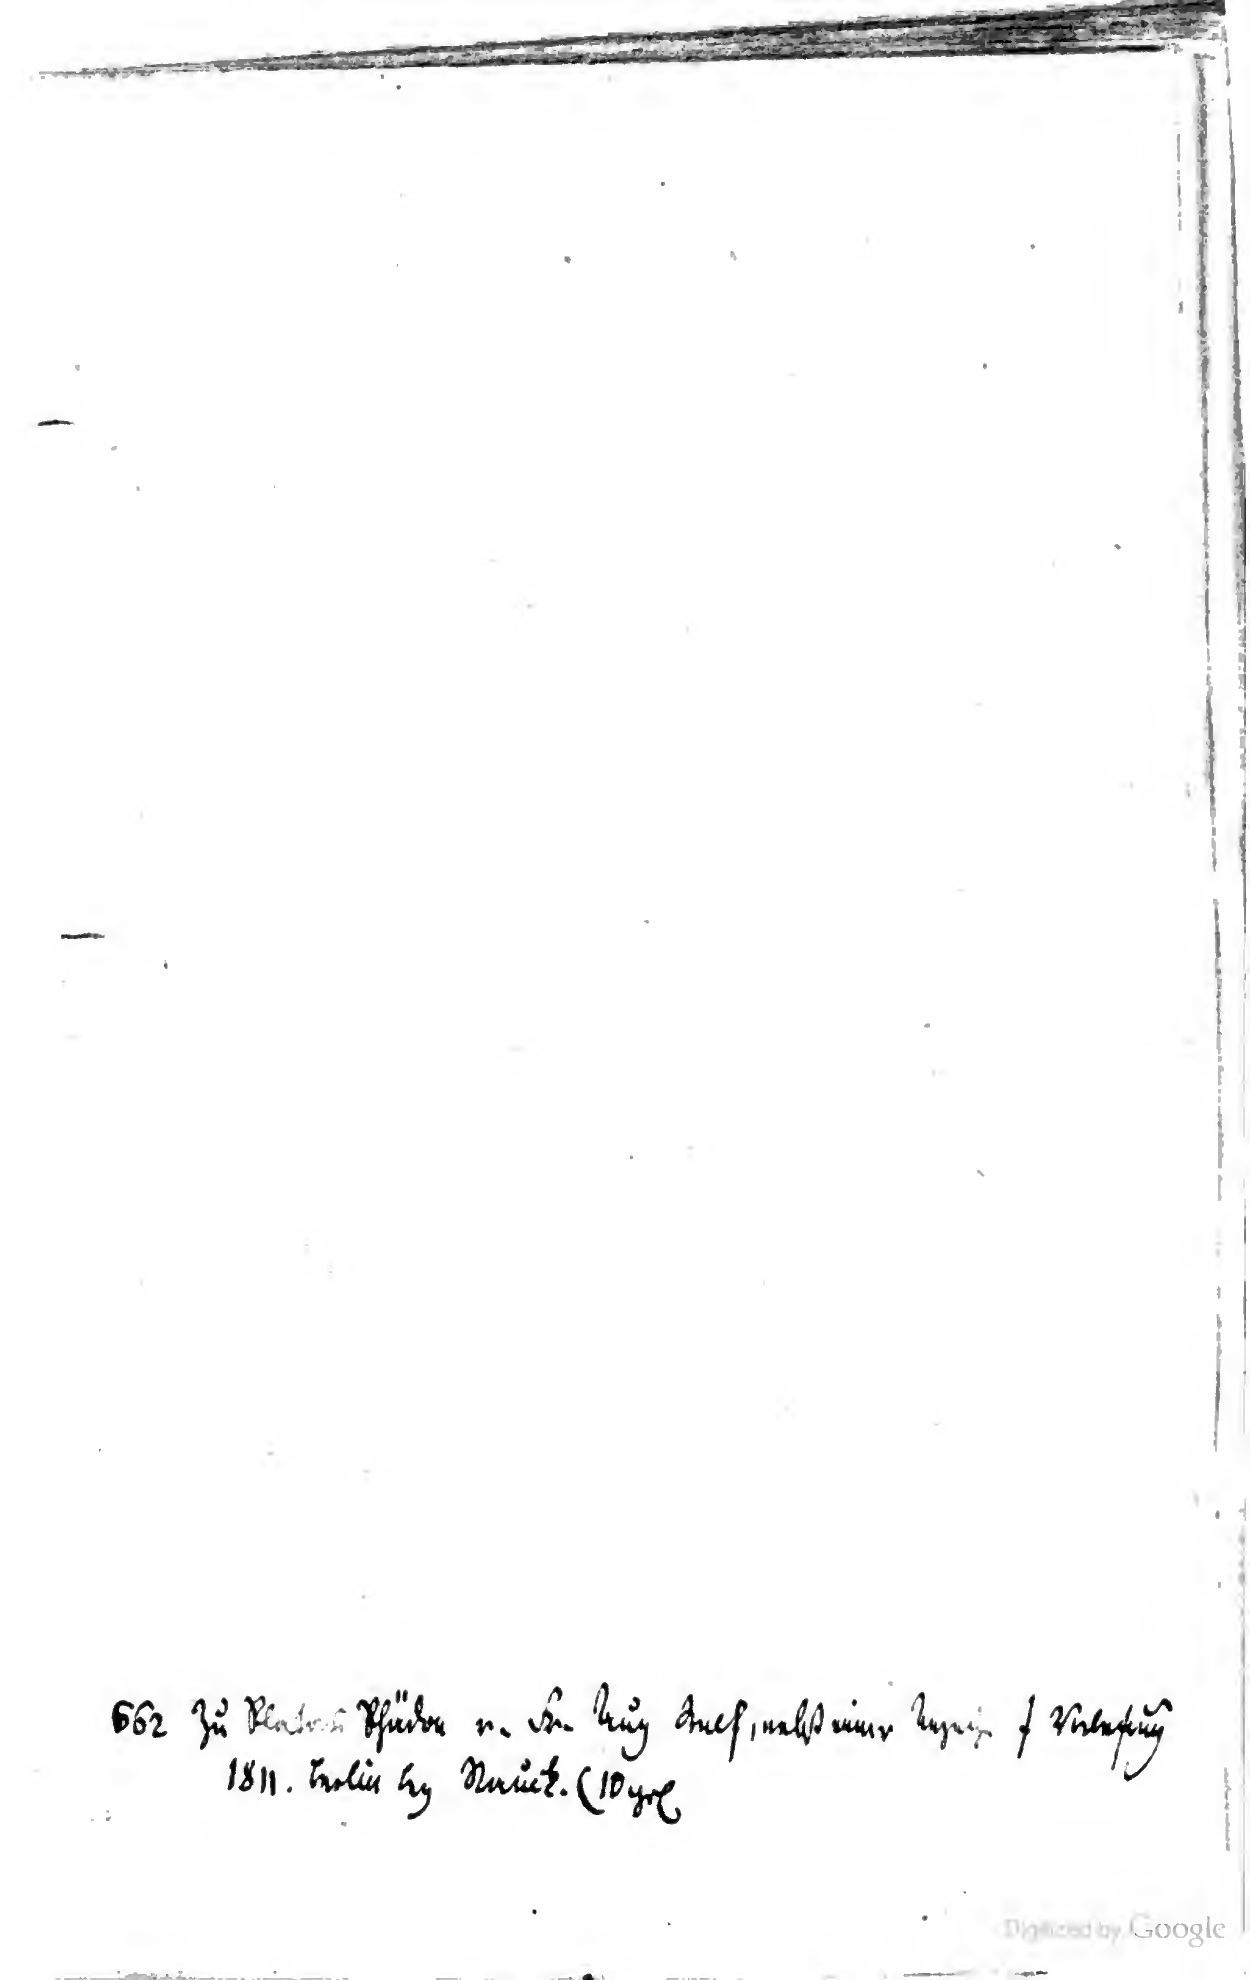 662 Zu Platons Phädon v. Fr. Aug Wolf, nebst einer Anzeige f Vorlesung
1811. Berlin bey Nauck. (10 grl
Digitized by Google